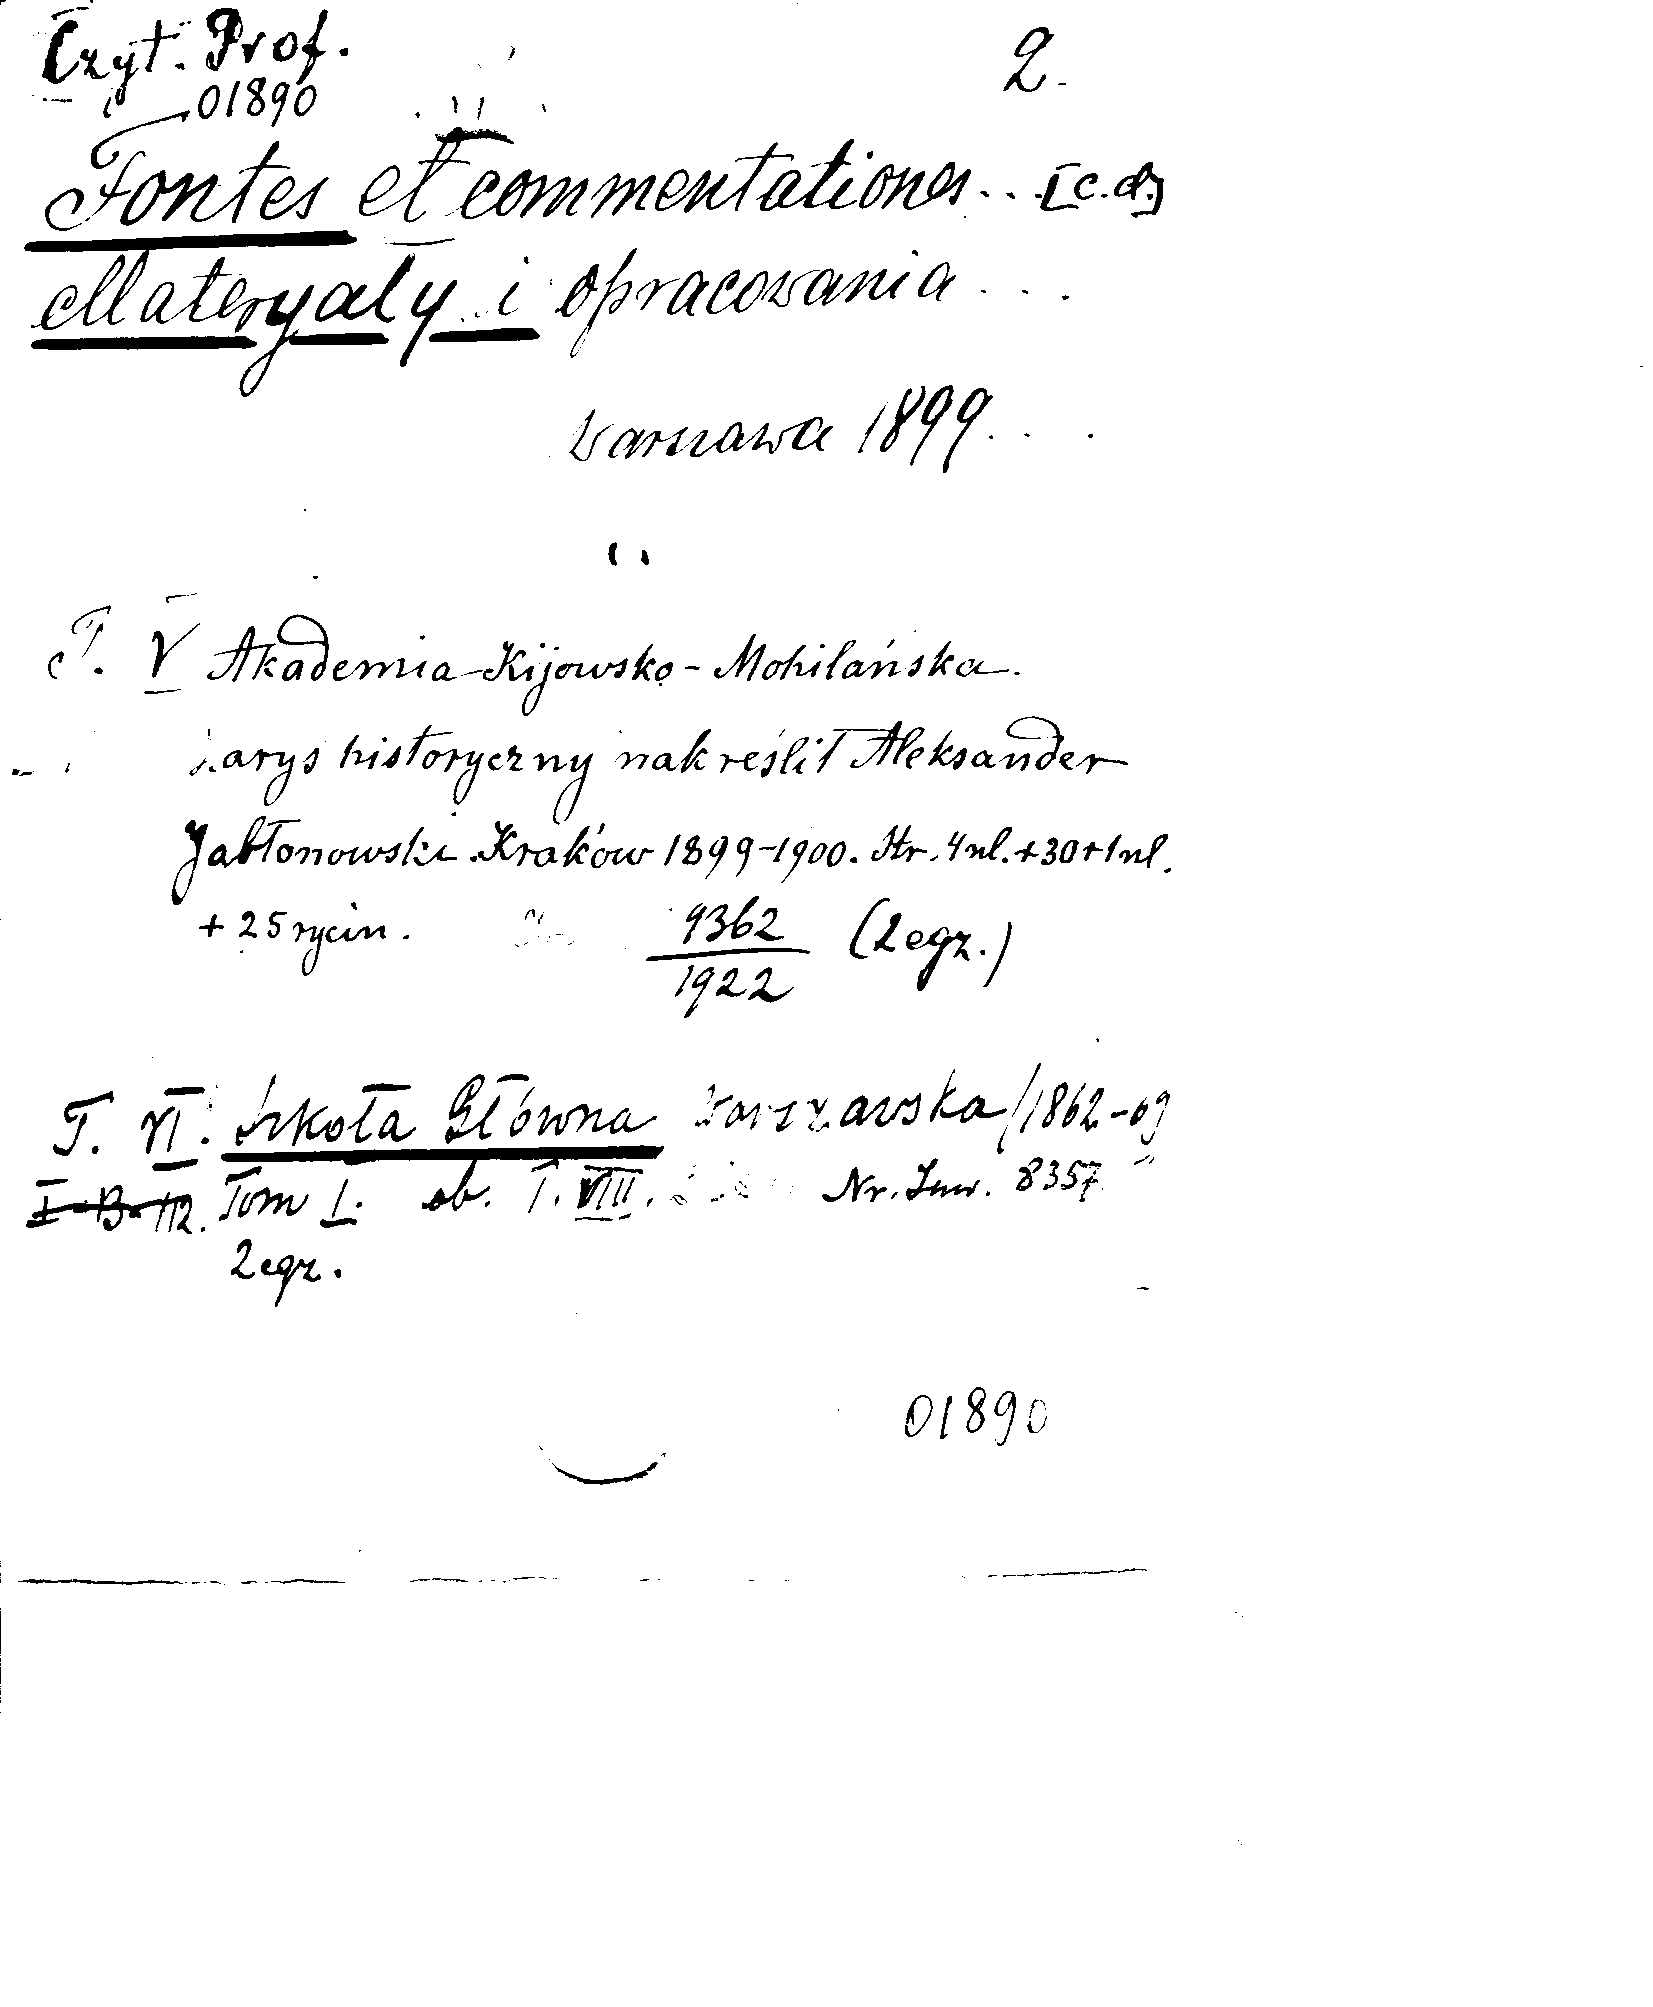 Czyt. Prof. 2.
01890
Fontes et commentationes... [c.d.]
Materyały i opracowania...
Warszawa 1899...
T. V Akademia Kijowsko-Mohilańska.
Zarys historyczny nakreślił Aleksander
Jabłonowski. Kraków 1899-1900. Str. 4 nl. + 30 + 1 nl.
+ 25 rycin. 9362/1922 (2 egz.)
T. VI. Szkoła Główna Warszawska (1862-69
I-B-112. Tom I. ob. T. VIII. Nr. Inw. 8357
2 egz.
01890